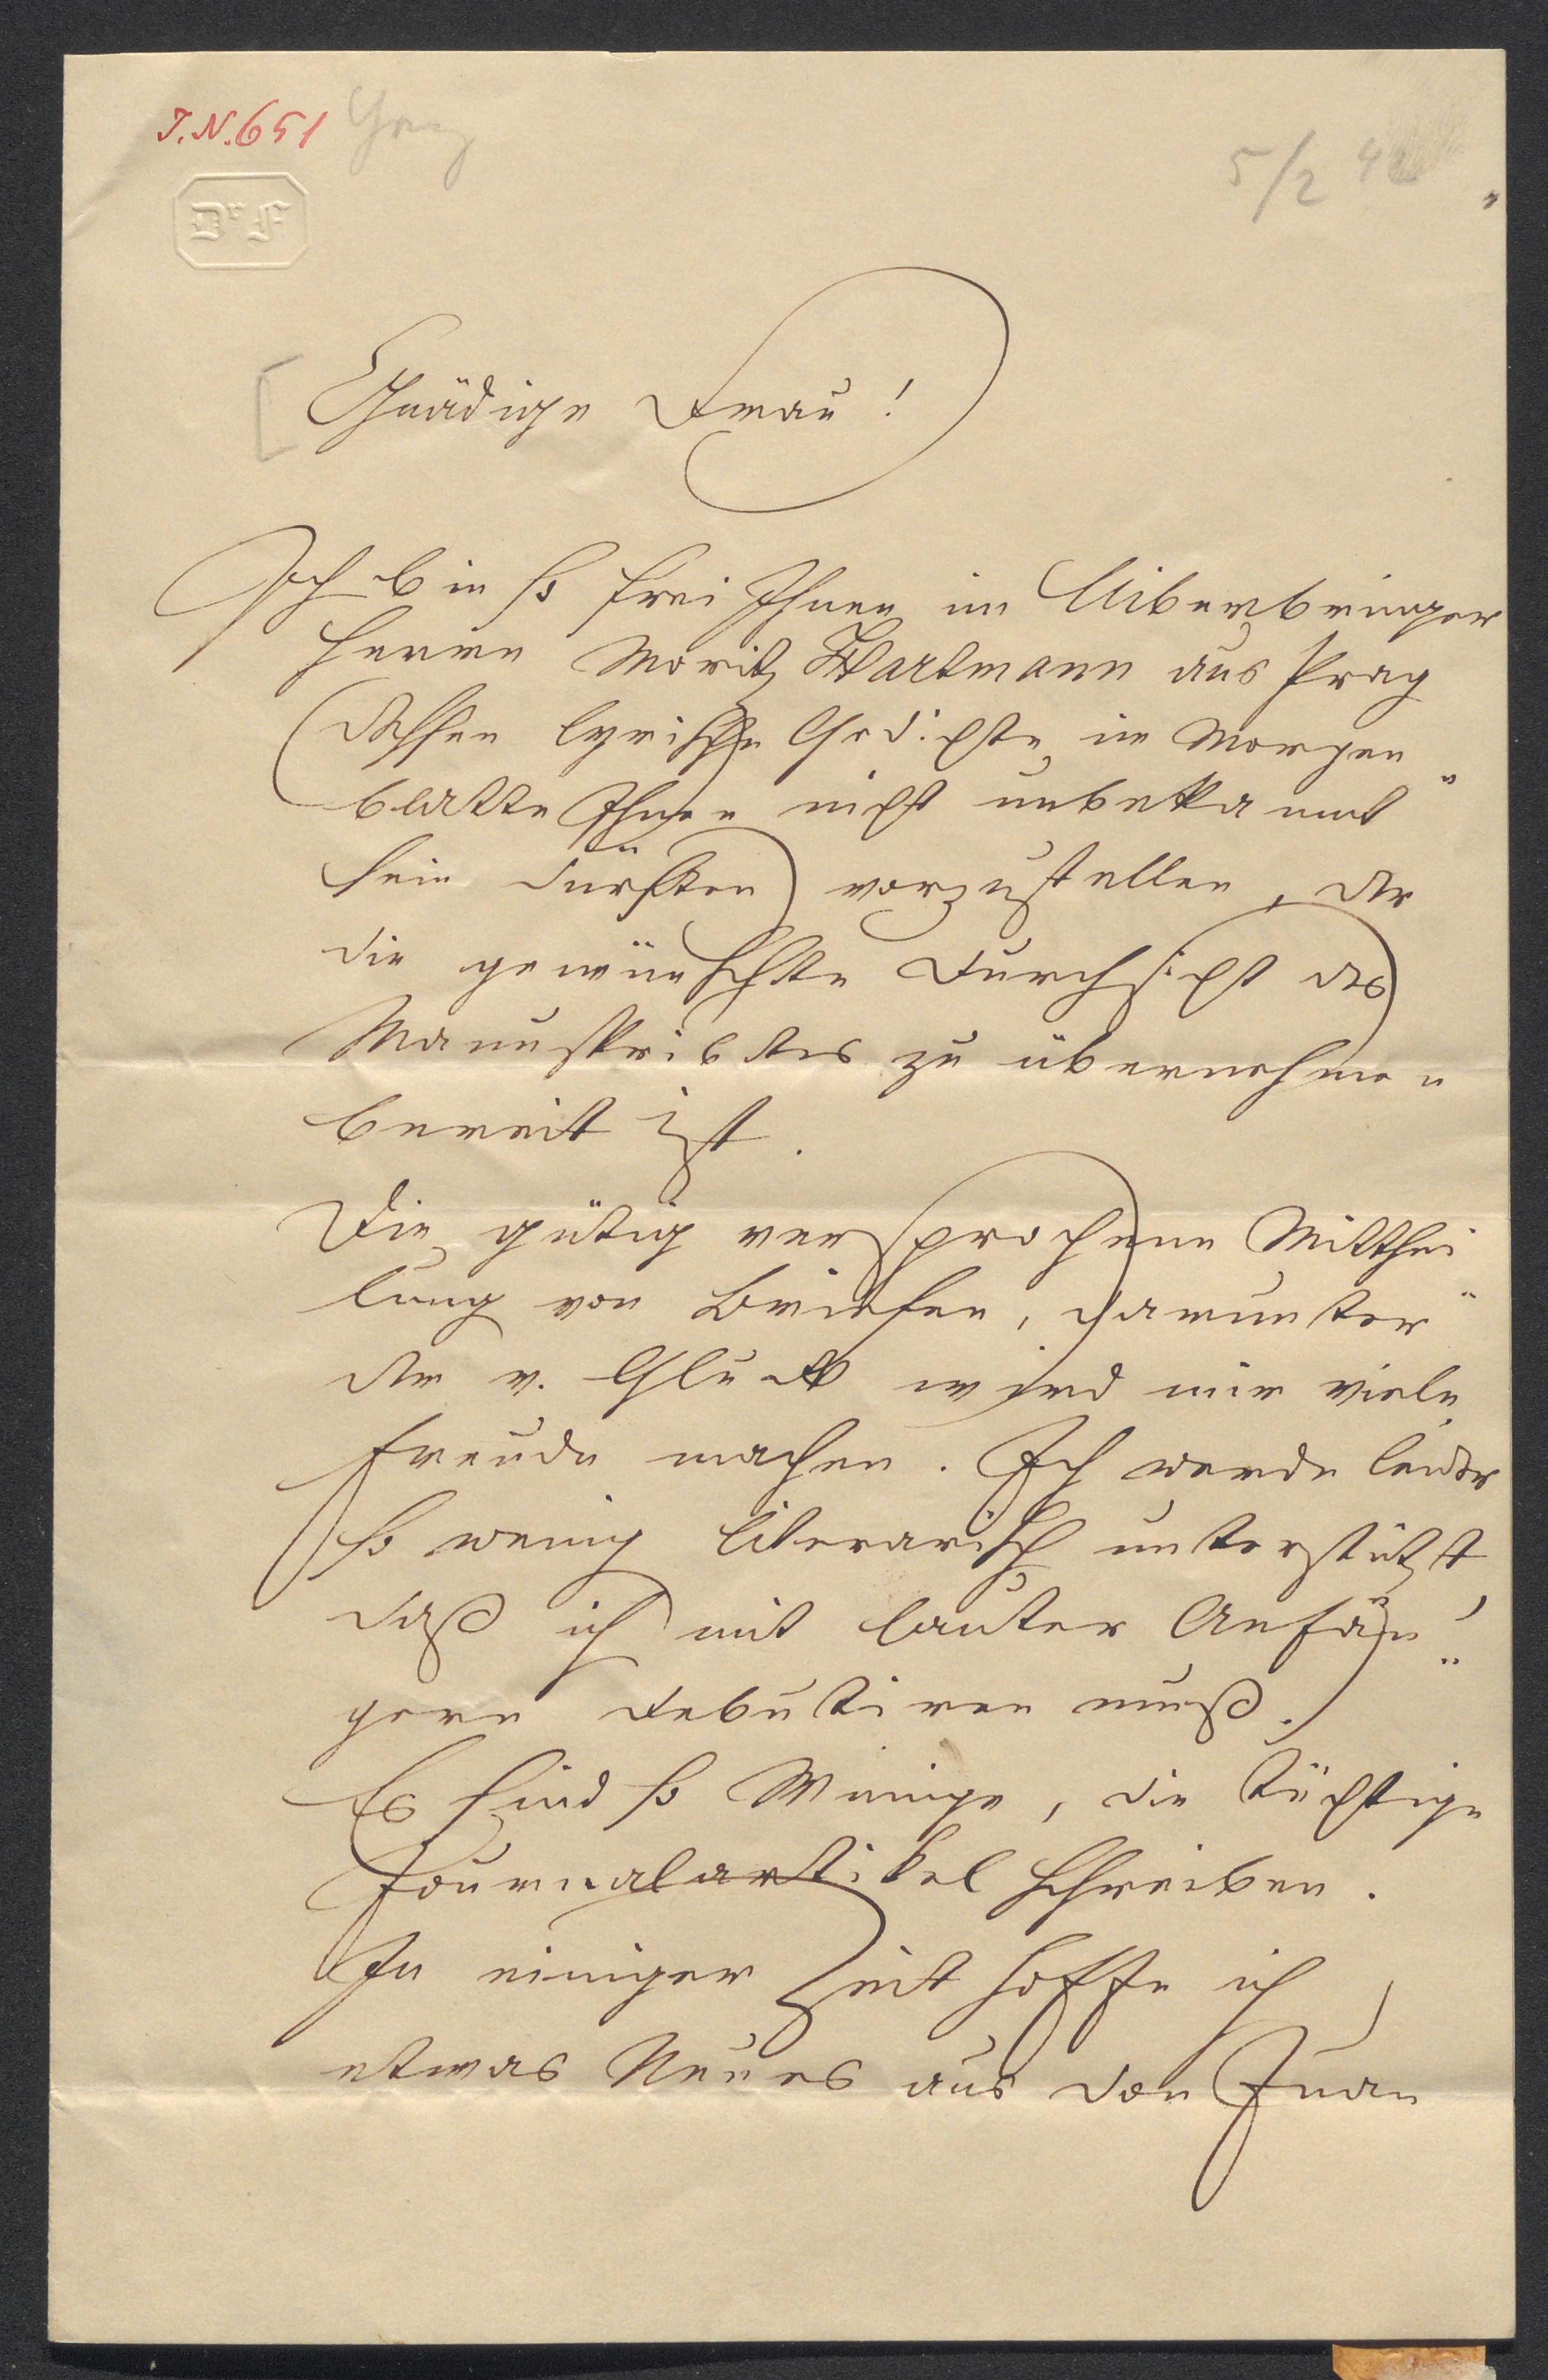 I.N. 651
5/2 42
Gnädige Frau!
Ich bin so frei Ihnen im Uiberbringer
Herrn Moritz Hartmann aus Prag
(dessen lyrische Gedichte im Morgen„
blatte Ihnen nicht unbekannt
sein dürften) vorzustellen, der
die gewünschte Durchsicht des
Manuskribtes zu übernehmen
bereit ist.
Die gütig versprochene Mitthei„
lung von Briefen, darunter
der v. Gluck wird mir viele
Freude machen. Ich werde leider
so wenig literarisch unterstützt
daß ich mit lauter Anfän„
gern debutiren muß.
Es sind so Wenige, die tüchtige
Journalartikel schreiben.
In einiger Zeit hoffe ich
etwas Neues aus Don Juan